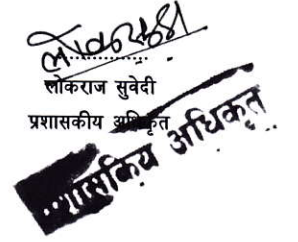 लोकराज सुवेदी
प्रशासकीय अधिकृत
शासकिय अधिकृत